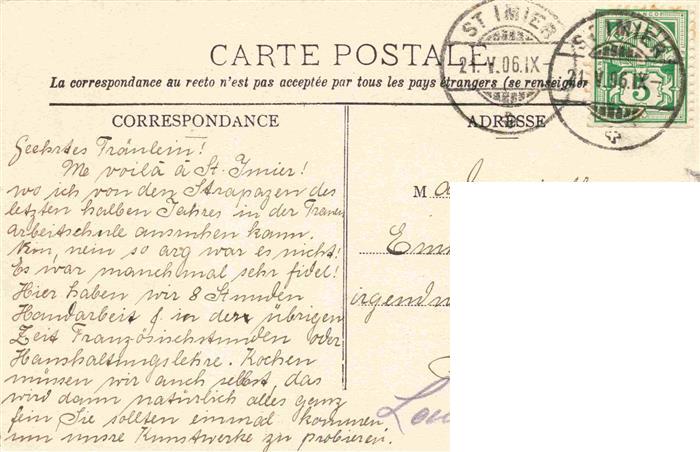 ST IMIER
21. V. 06. IX
ST IMIER
21. V. 06. IX
5
CARTE POSTALE
La correspondance au recto n'est pas acceptée par tous les pays étrangers (se renseigner
CORRESPONDANCE
Geehrtes Fräulein!
Me voilà à St. Imier!
wo ich von den Strapazen des
letzten halben Jahres in der Frauen
arbeitschule ausruhen kann.
Nein, nein so arg war es nicht!
Es war manchmal sehr fidel!
Hier haben wir 8 Stunden
Handarbeit & in der übrigen
Zeit Französischstunden oder
Haushaltungslehre. Kochen
müssen wir auch selbst, das
wird dann natürlich alles ganz
fein Sie sollten einmal kommen
um unsre Kunstwerke zu probieren.
ADRESSE
M